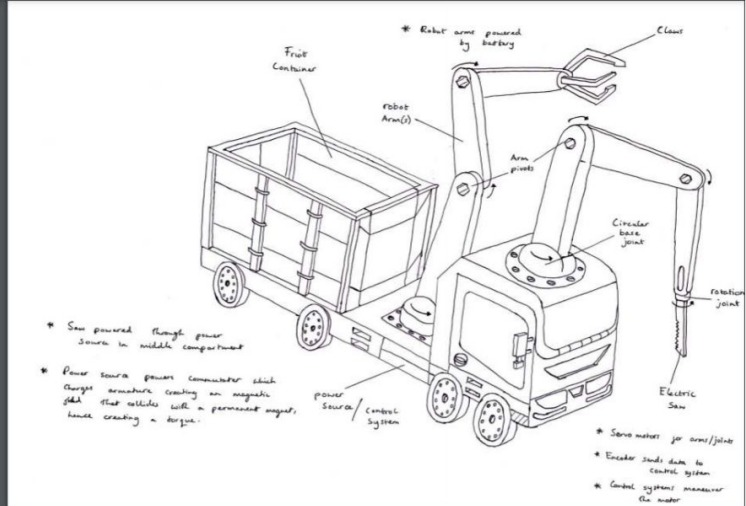 * Robot arms powered
by battery
Claws
Fruit
Container
robot
Arm(s)
Arm
pivots
Circular
base
joint
rotation
joint
Electric
Saw
* Saw powered through power
Source in middle compartment
* Power source powers commutator which
Charges armature creating an magnetic
field that collides with a permanent magnet,
hence creating a torque.
power
Source/Control
System
* Servo motors for arms/joints
* Encoder sends data to
control system
* Control systems maneuver
the motor